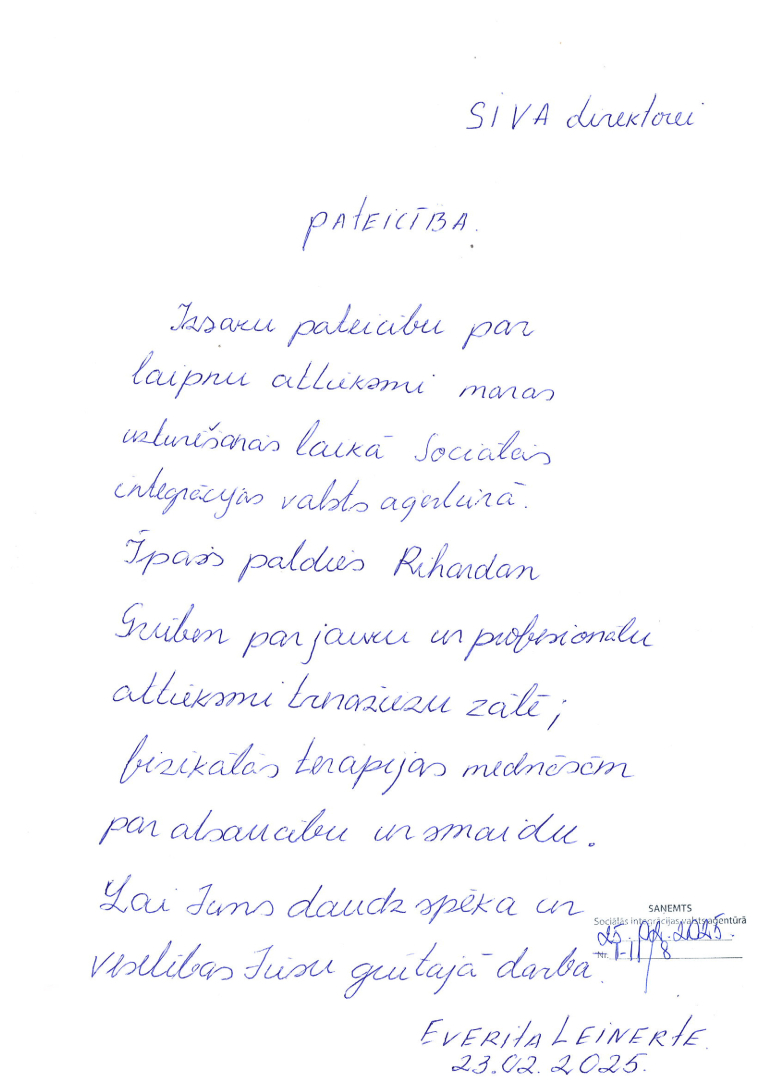 SIVA direktorei
PATEICĪBA.
Izsaku pateicību par
laipnu attieksmi manas
uzturēšanās laikā Sociālās
integrācijas valsts aģentūrā.
Īpašs paldies Rihardam
par jauku un profesionālu
attieksmi trenažieru zālē;
fizikālās terapijas medmāsām
par atsaucību un smaidu.
Lai Jums daudz spēka un
veselības Jūsu grūtajā darbā.
SAŅEMTS
Sociālās integrācijas valsts aģentūrā
25. 02. 2025.
Nr. 1-11/8
EVERITA LEINERTE
23.02.2025.